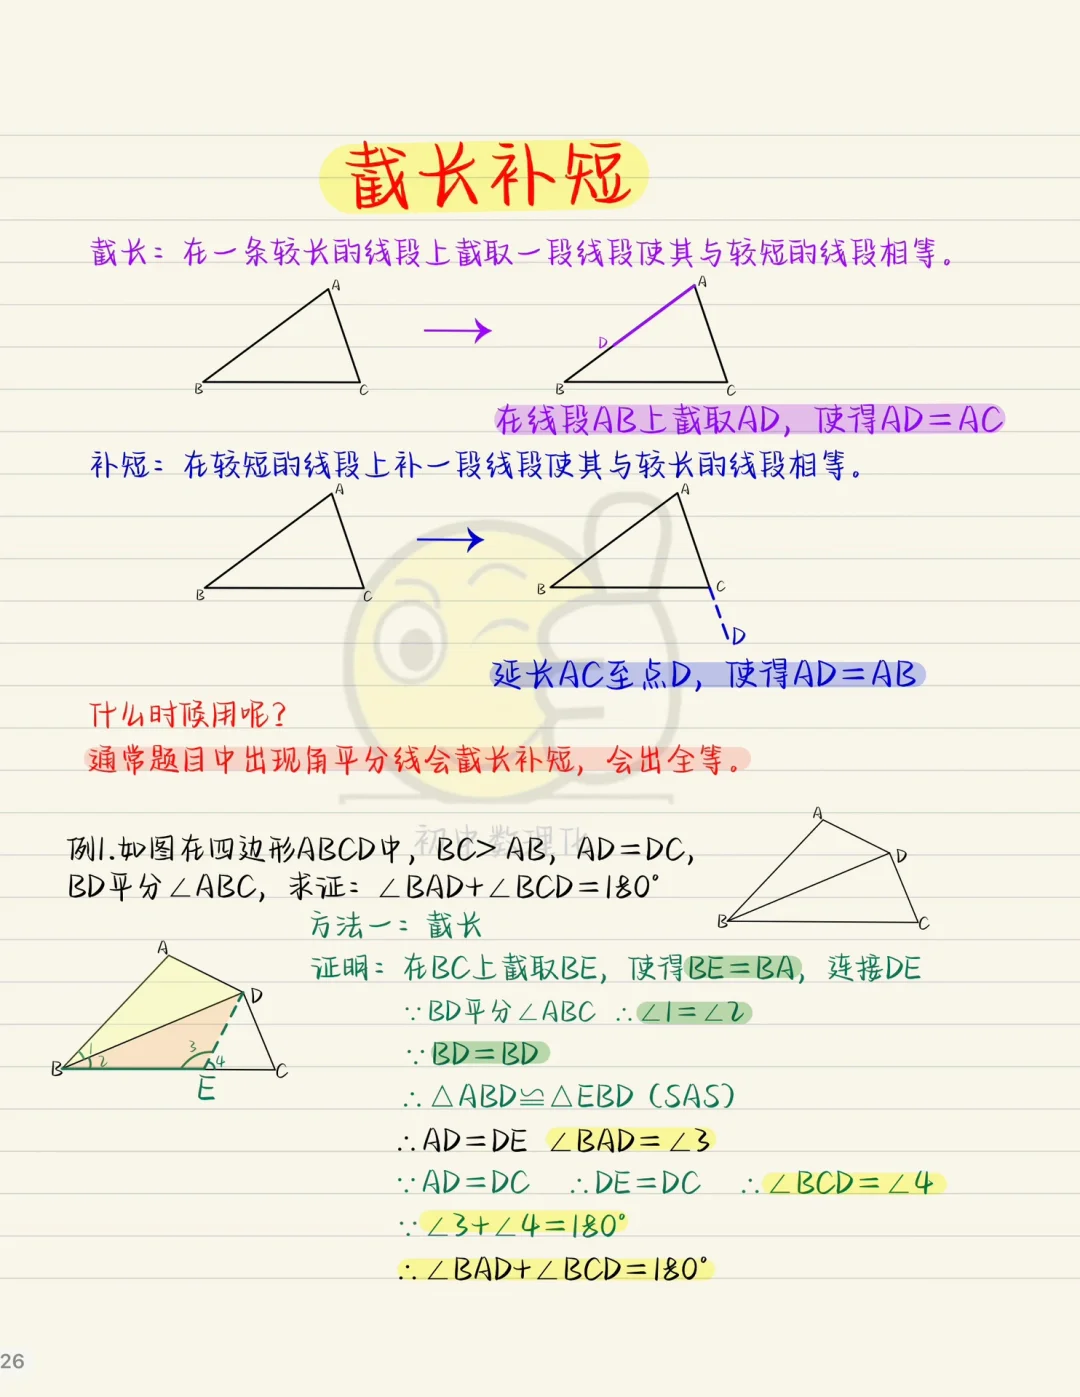 截长补短
截长：在一条较长的线段上截取一段线段使其与较短的线段相等。
A
B
C
A
D
B
C
在线段AB上截取AD，使得AD=AC
补短：在较短的线段上补一段线段使其与较长的线段相等。
A
B
C
A
B
C
D
延长AC至点D，使得AD=AB
什么时候用呢？
通常题目中出现角平分线会截长补短，会出全等。
初中数理化
例1.如图在四边形ABCD中，BC>AB，AD=DC，
BD平分∠ABC，求证：∠BAD+∠BCD=180°
A
D
B
C
方法一：截长
证明：在BC上截取BE，使得BE=BA，连接DE
∵BD平分∠ABC ∴∠1=∠2
∵BD=BD
∴△ABD≌△EBD（SAS）
∴AD=DE ∠BAD=∠3
∵AD=DC ∴DE=DC ∴∠BCD=∠4
∵∠3+∠4=180°
∴∠BAD+∠BCD=180°
A
D
1
2
3
4
B
E
C
26